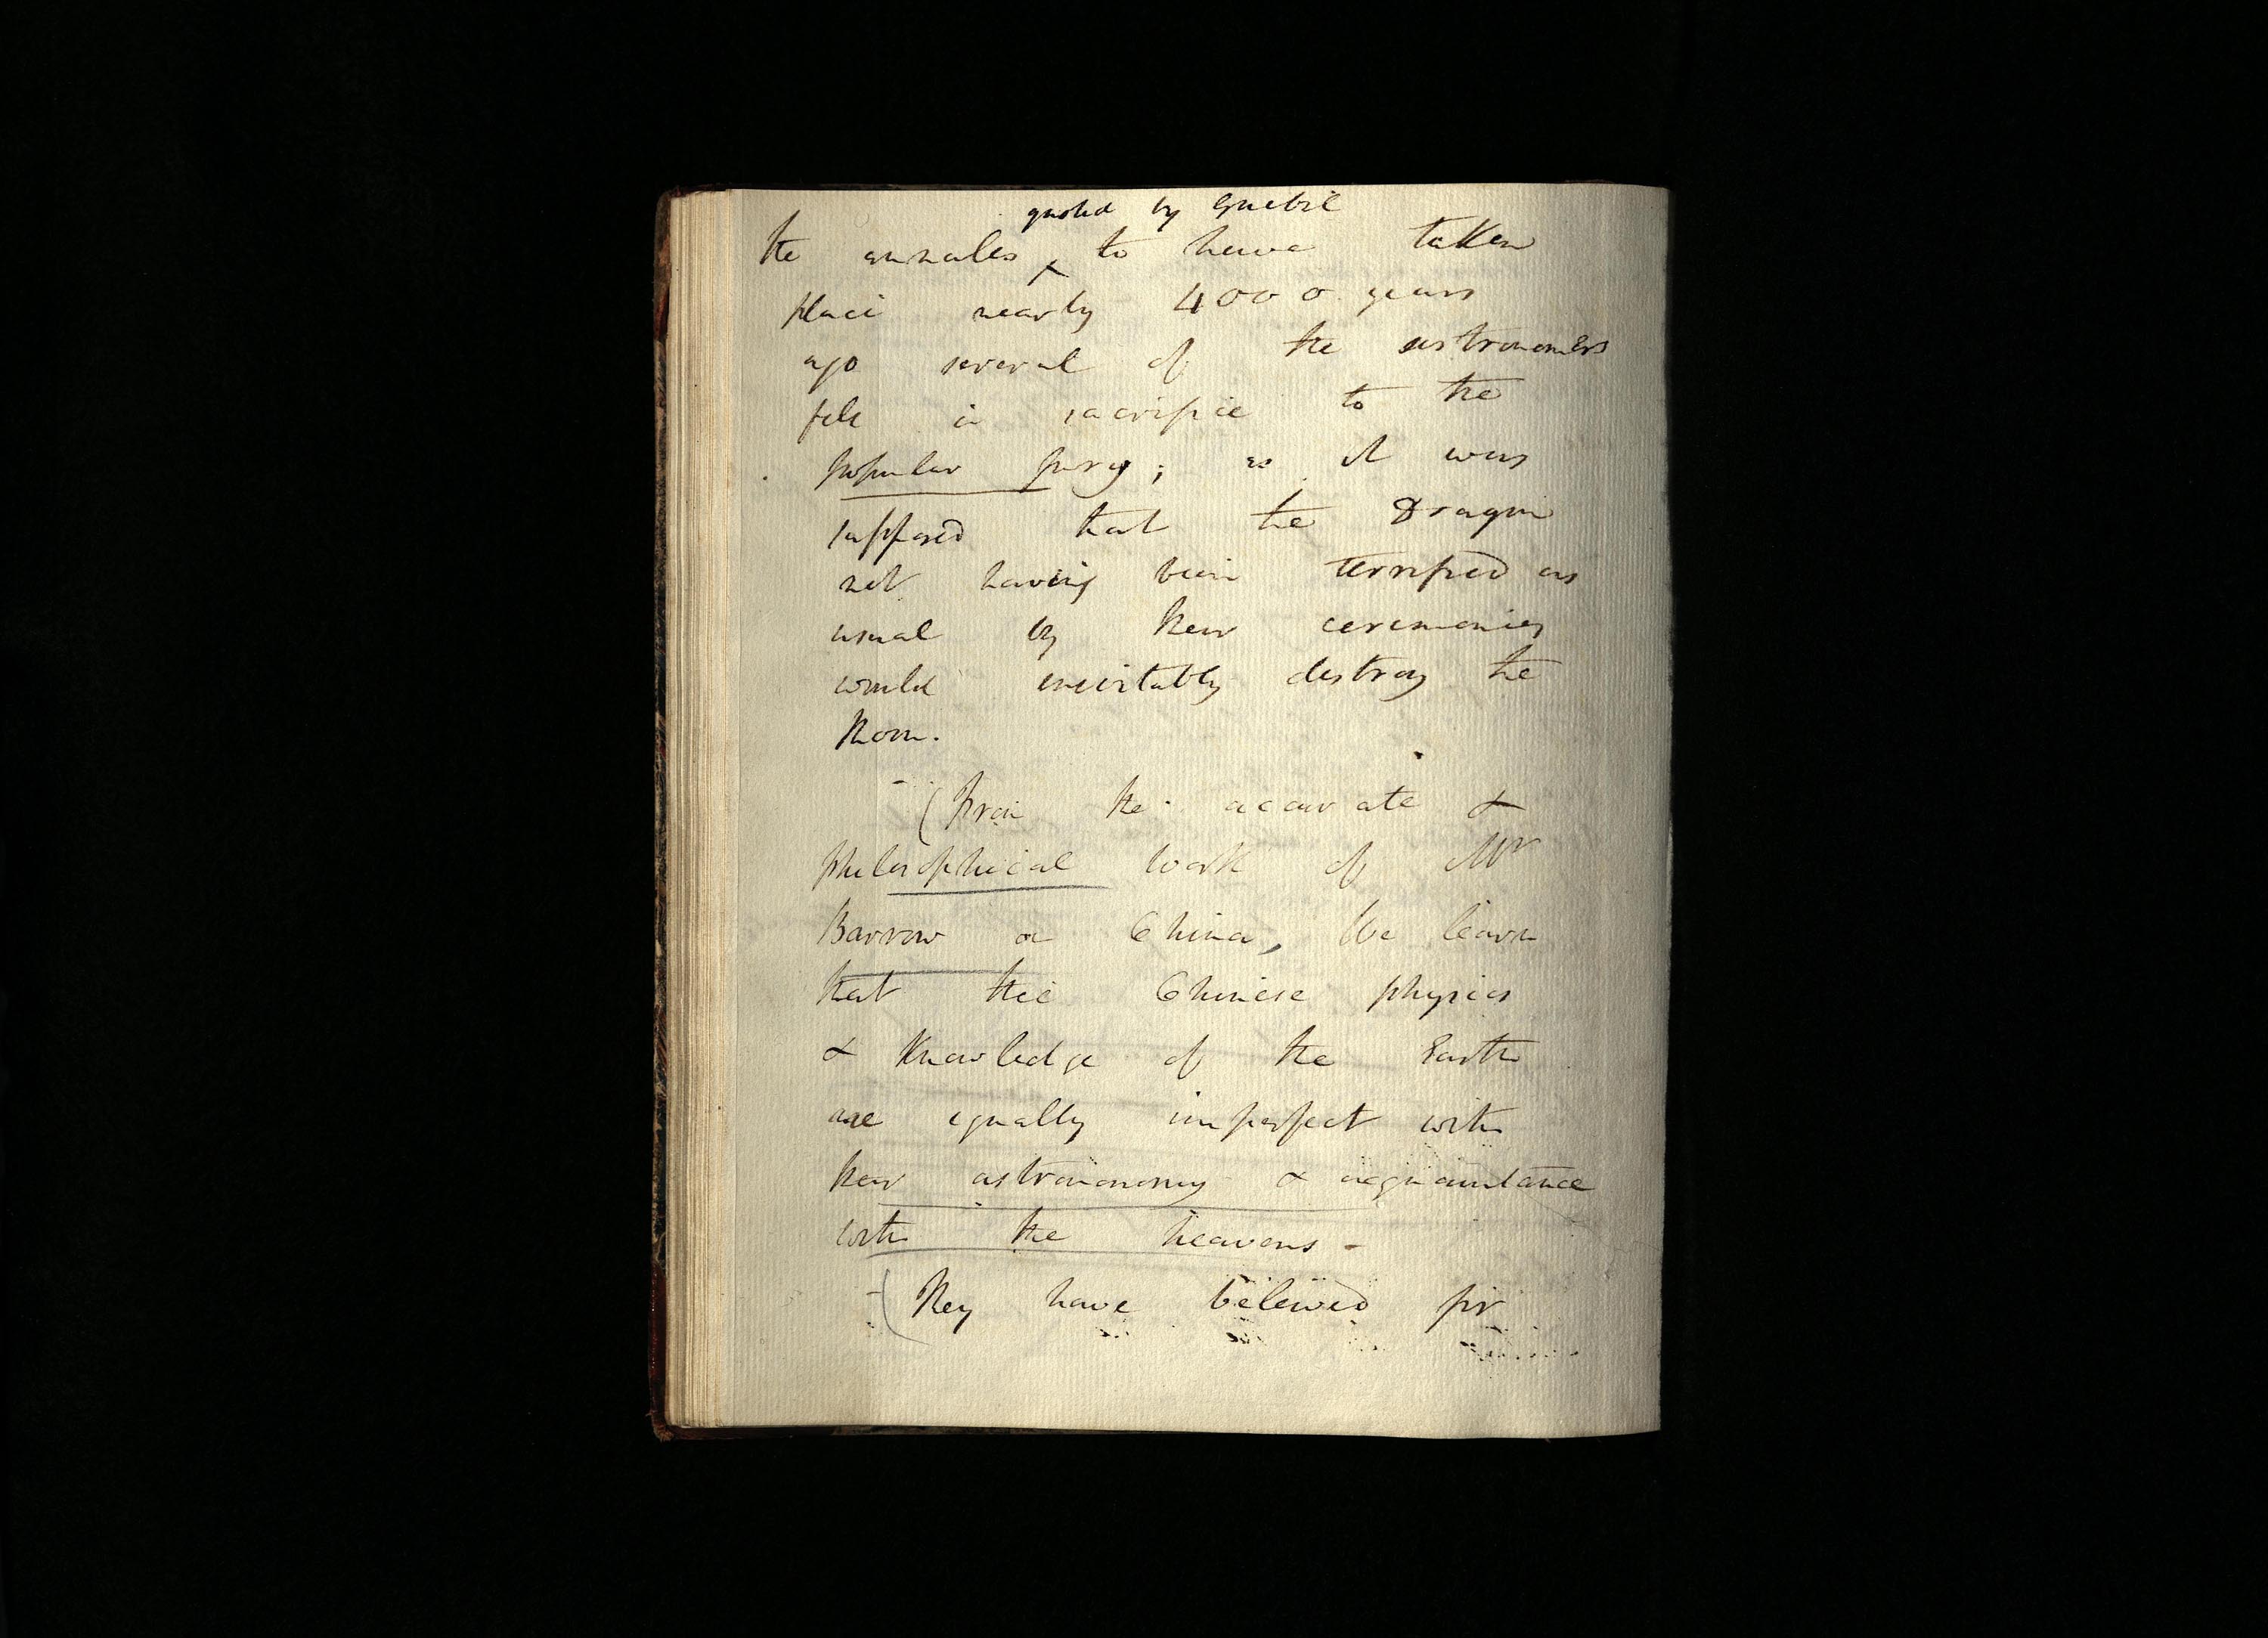 quoted by Guebil
the annales ^ to have taken
place nearly 4000 years
ago several of the astronomers
fell a sacrifice to the
popular fury; as it was
supposed that the Dragon
not having been terrified as
usual by their ceremonies
would inevitably destroy the
Moon.
- (From the accurate &
philosophical work of Mr
Barrow on China, We learn
that the Chinese physics
& Knowledge of the Earth
are equally imperfect with
their astronomy & acquaintance
with the heavens -
- (They have beleived for